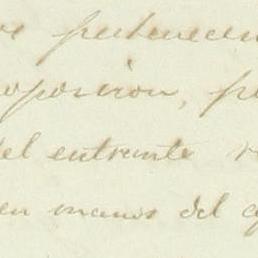 pertenecen
oposicion,
del entrante
en manos del